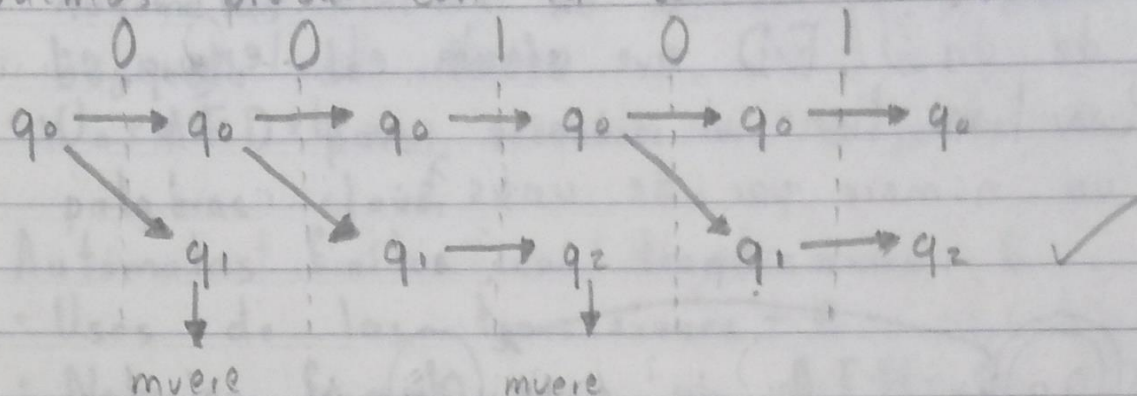 0 0 1 0 1
q₀ → q₀ → q₀ → q₀ → q₀ → q₀
q₁ q₁ → q₂ q₁ → q₂ ✓
muere muere